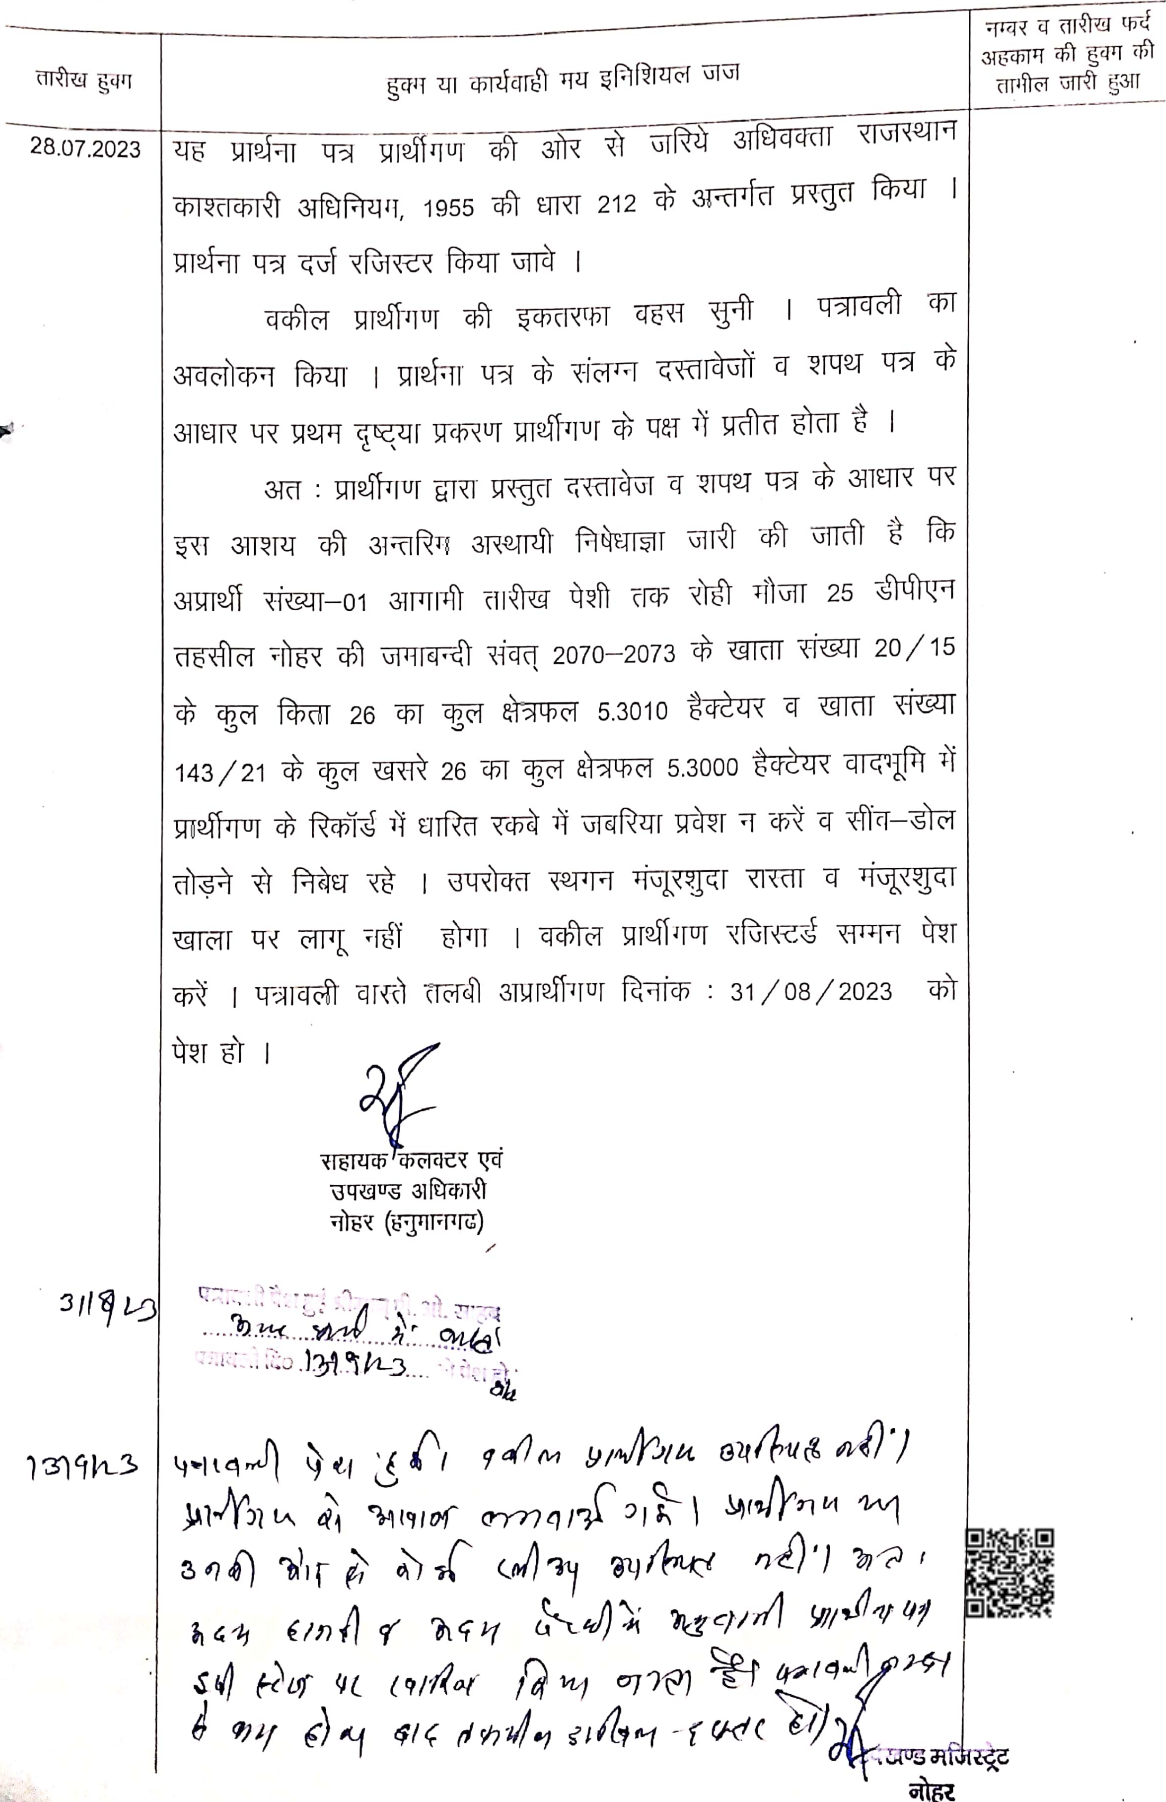 तारीख हुक्म
हुक्म या कार्यवाही मय इनिशियल जज
नम्बर व तारीख फर्द
अहकाम की हुक्म की
तामील जारी हुआ
28.07.2023
यह प्रार्थना पत्र प्रार्थीगण की ओर से जरिये अधिवक्ता राजस्थान
काश्तकारी अधिनियम, 1955 की धारा 212 के अन्तर्गत प्रस्तुत किया ।
प्रार्थना पत्र दर्ज रजिस्टर किया जावे ।
वकील प्रार्थीगण की इकतरफा वहस सुनी । पत्रावली का
अवलोकन किया । प्रार्थना पत्र के संलग्न दस्तावेजों व शपथ पत्र के
आधार पर प्रथम दृष्ट्या प्रकरण प्रार्थीगण के पक्ष में प्रतीत होता है ।
अत : प्रार्थीगण द्वारा प्रस्तुत दस्तावेज व शपथ पत्र के आधार पर
इस आशय की अन्तरिम अस्थायी निषेधाज्ञा जारी की जाती है कि
अप्रार्थी संख्या–01 आगामी तारीख पेशी तक रोही मौजा 25 डीपीएन
तहसील नोहर की जमाबन्दी संवत् 2070–2073 के खाता संख्या 20/15
के कुल किता 26 का कुल क्षेत्रफल 5.3010 हैक्टेयर व खाता संख्या
143/21 के कुल खसरे 26 का कुल क्षेत्रफल 5.3000 हैक्टेयर वादभूमि में
प्रार्थीगण के रिकॉर्ड में धारित रकबे में जबरिया प्रवेश न करें व सींव–डोल
तोड़ने से निबेध रहे । उपरोक्त स्थगन मंजूरशुदा रास्ता व मंजूरशुदा
खाला पर लागू नहीं होगा । वकील प्रार्थीगण रजिस्टर्ड सम्मन पेश
करें । पत्रावली वास्ते तलबी अप्रार्थीगण दिनांक : 31/08/2023 को
पेश हो ।
सहायक कलक्टर एवं
उपखण्ड अधिकारी
नोहर (हनुमानगढ)
31/8/23
पत्रावली पेश हुई श्रीमान् पी. ओ. साहब
अन्य कार्य में व्यस्त
पत्रावली दि० 13/9/23 को पेश हो
13/9/23
पत्रावली पेश हुई। वकील प्रार्थीगण उपस्थित नहीं।
प्रार्थीगण को आवाज लगवाई गई। प्रार्थीगण या
उनकी ओर से कोई उपस्थित नहीं। अतः
अदम हाजरी व अदम पैरवी में प्रार्थना पत्र
इसी स्टेज पर खारिज किया जाता है। पत्रावली
से कम होकर बाद तकमील दाखिल दफ्तर हो।
उपखण्ड मजिस्ट्रेट
नोहर